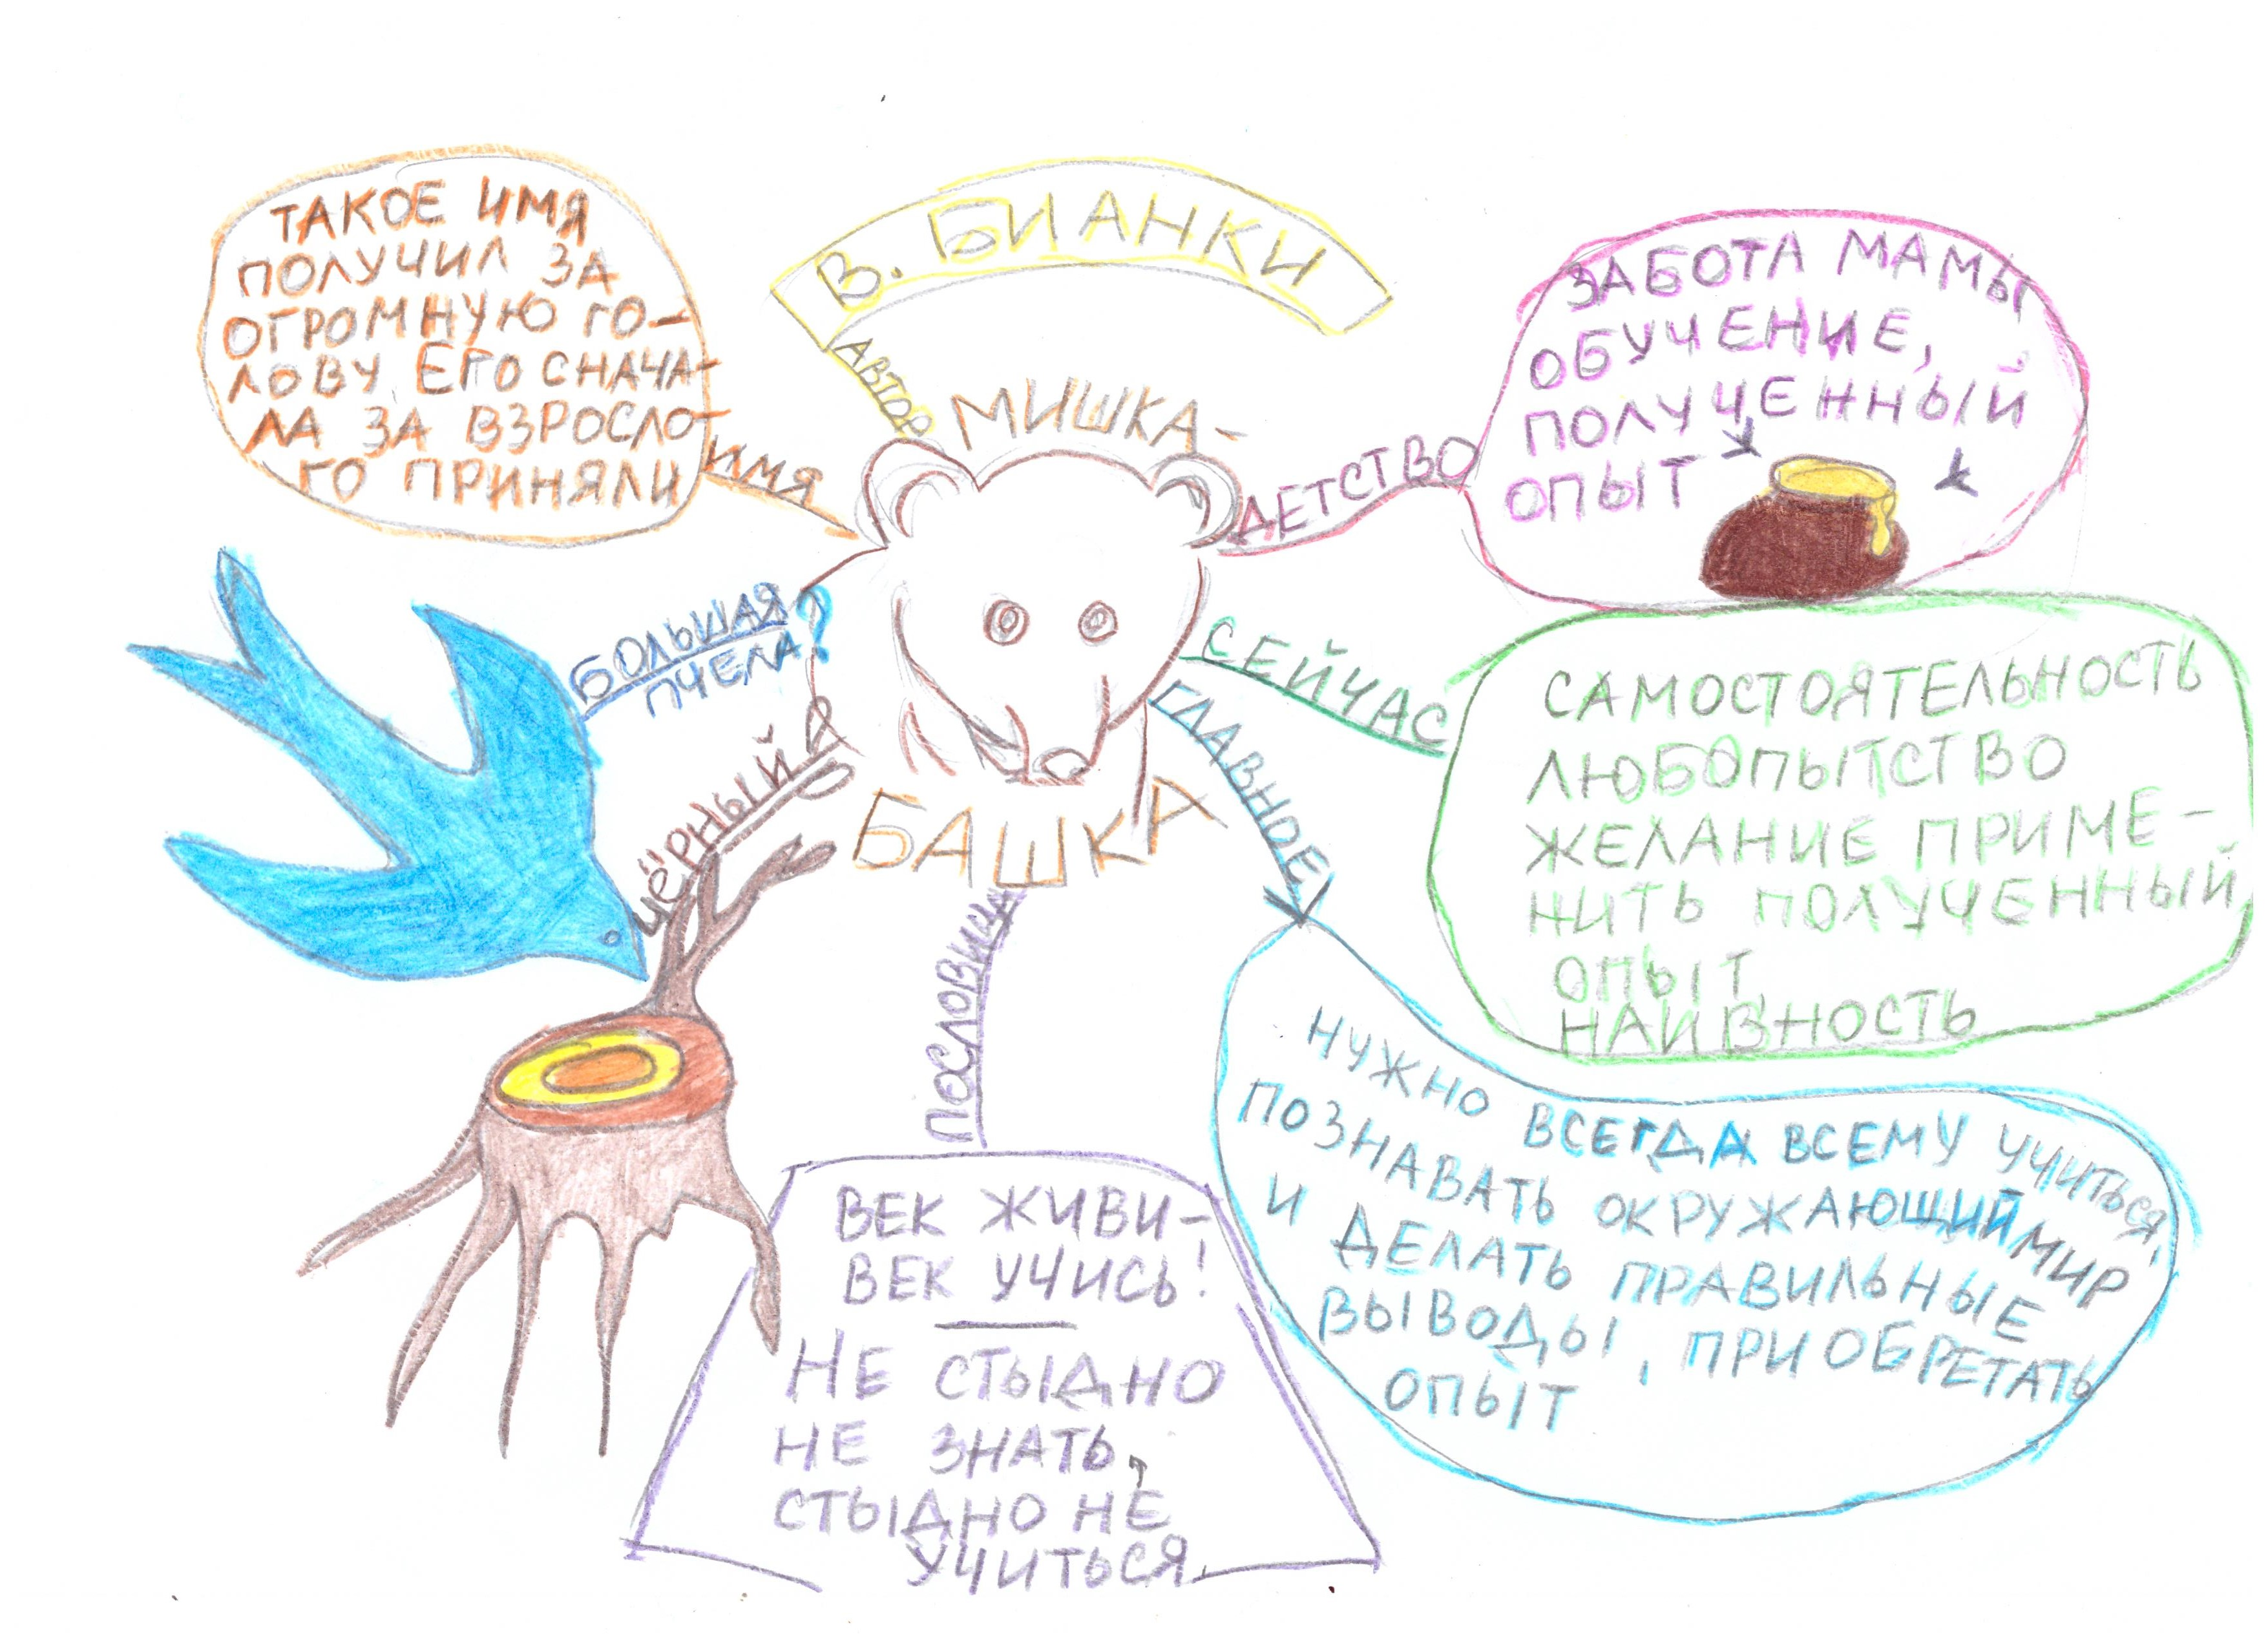 ТАКОЕ ИМЯ
ПОЛУЧИЛ ЗА
ОГРОМНУЮ ГО-
ЛОВУ, ЕГО СНАЧА-
ЛА ЗА ВЗРОСЛО-
ГО ПРИНЯЛИ
ИМЯ
В. БИАНКИ
АВТОР
МИШКА-
БАШКА
ДЕТСТВО
ЗАБОТА МАМЫ
ОБУЧЕНИЕ,
ПОЛУЧЕННЫЙ
ОПЫТ
БОЛЬШАЯ
ПЧЕЛА?
ЧЁРНЫЙ
СЕЙЧАС
САМОСТОЯТЕЛЬНОСТЬ
ЛЮБОПЫТСТВО
ЖЕЛАНИЕ ПРИМЕ-
НИТЬ ПОЛУЧЕННЫЙ
ОПЫТ,
НАИВНОСТЬ
ГЛАВНОЕ
НУЖНО ВСЕГДА ВСЕМУ УЧИТЬСЯ,
ПОЗНАВАТЬ ОКРУЖАЮЩИЙ МИР
И ДЕЛАТЬ ПРАВИЛЬНЫЕ
ВЫВОДЫ, ПРИОБРЕТАТЬ
ОПЫТ
ПОСЛОВИЦЫ
ВЕК ЖИВИ-
ВЕК УЧИСЬ!
НЕ СТЫДНО
НЕ ЗНАТЬ,
СТЫДНО НЕ
УЧИТЬСЯ.